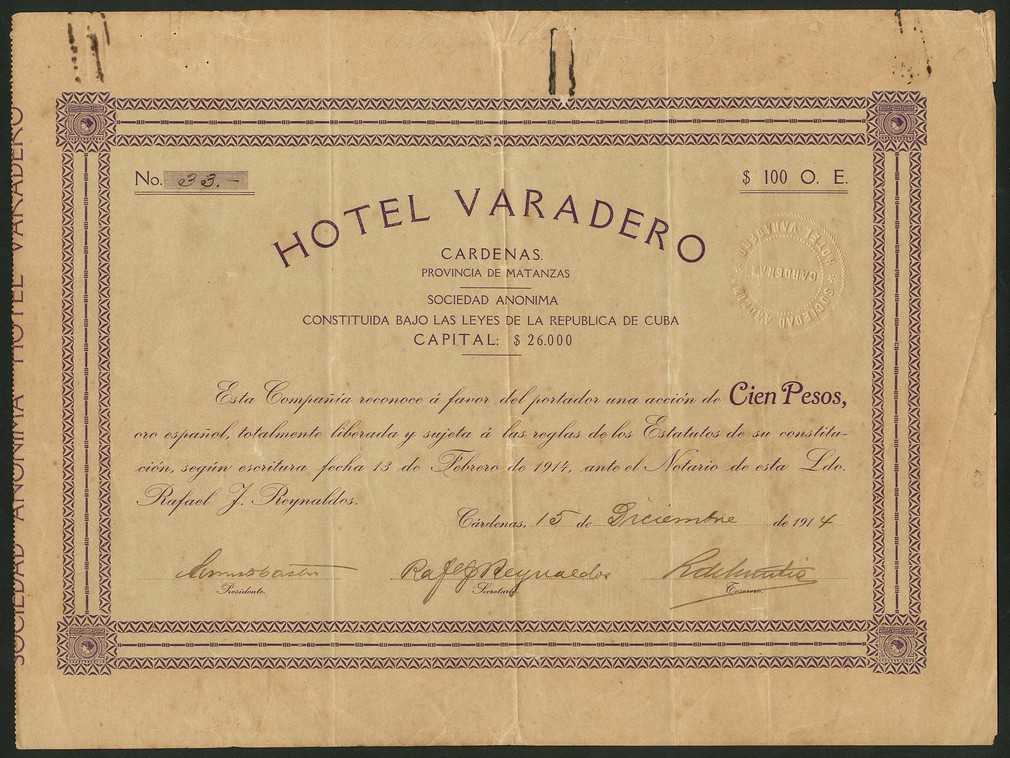 No. 33.-
$ 100 O. E.
HOTEL VARADERO
CARDENAS.
PROVINCIA DE MATANZAS
SOCIEDAD ANONIMA
CONSTITUIDA BAJO LAS LEYES DE LA REPUBLICA DE CUBA
CAPITAL: $ 26.000
SOCIEDAD ANONIMA * HOTEL VARADERO *
CARDENAS
Esta Compañía reconoce á favor del portador una acción de Cien Pesos,
oro español, totalmente liberada y sujeta á las reglas de los Estatutos de su constitu-
ción, según escritura fecha 13 de Febrero de 1914, ante el Notario de esta Ldo.
Rafael J. Reynaldos.
Cárdenas, 15 de Diciembre de 1914
Raf J Reynaldos
Presidente. Secretario. Tesorero.
SOCIEDAD ANONIMA HOTEL VARADERO